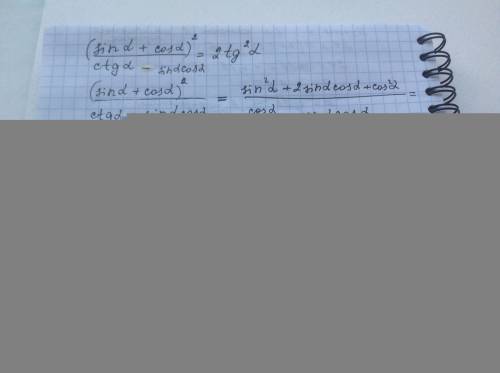 (sin α + cos α)² / (ctg α − sin α cos α) = 2tg²α
(sin α + cos α)² / (ctg α sin α cos α = sin²α + 2 sin α cos α + cos²α / cos α =